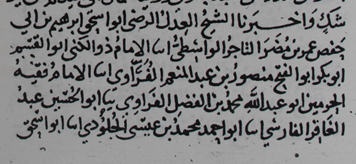 شك واخبرنا الشيخ العدل الرضي ابو اسحق ابرهيم بن ابي
حفص عمر بن مضر التاجر الواسطي انا الامام ذو الكنى ابو القسم
ابو بكر ابو الفتح منصور بن عبد المنعم الفراوي انا الامام فقيه
الحرمين ابو عبد الله محمد بن الفضل الفراوي انا ابو الحسين عبد
الغافر الفارسي انا ابو احمد محمد بن عيسى الجلودي انا ابو اسحق